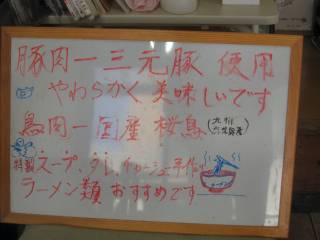 豚肉ー三元豚 使用
やわらかく美味しいです
鳥肉ー国産 桜鳥
特製スープ、タレ、チャーシュー手作り
ラーメン類 おすすめです